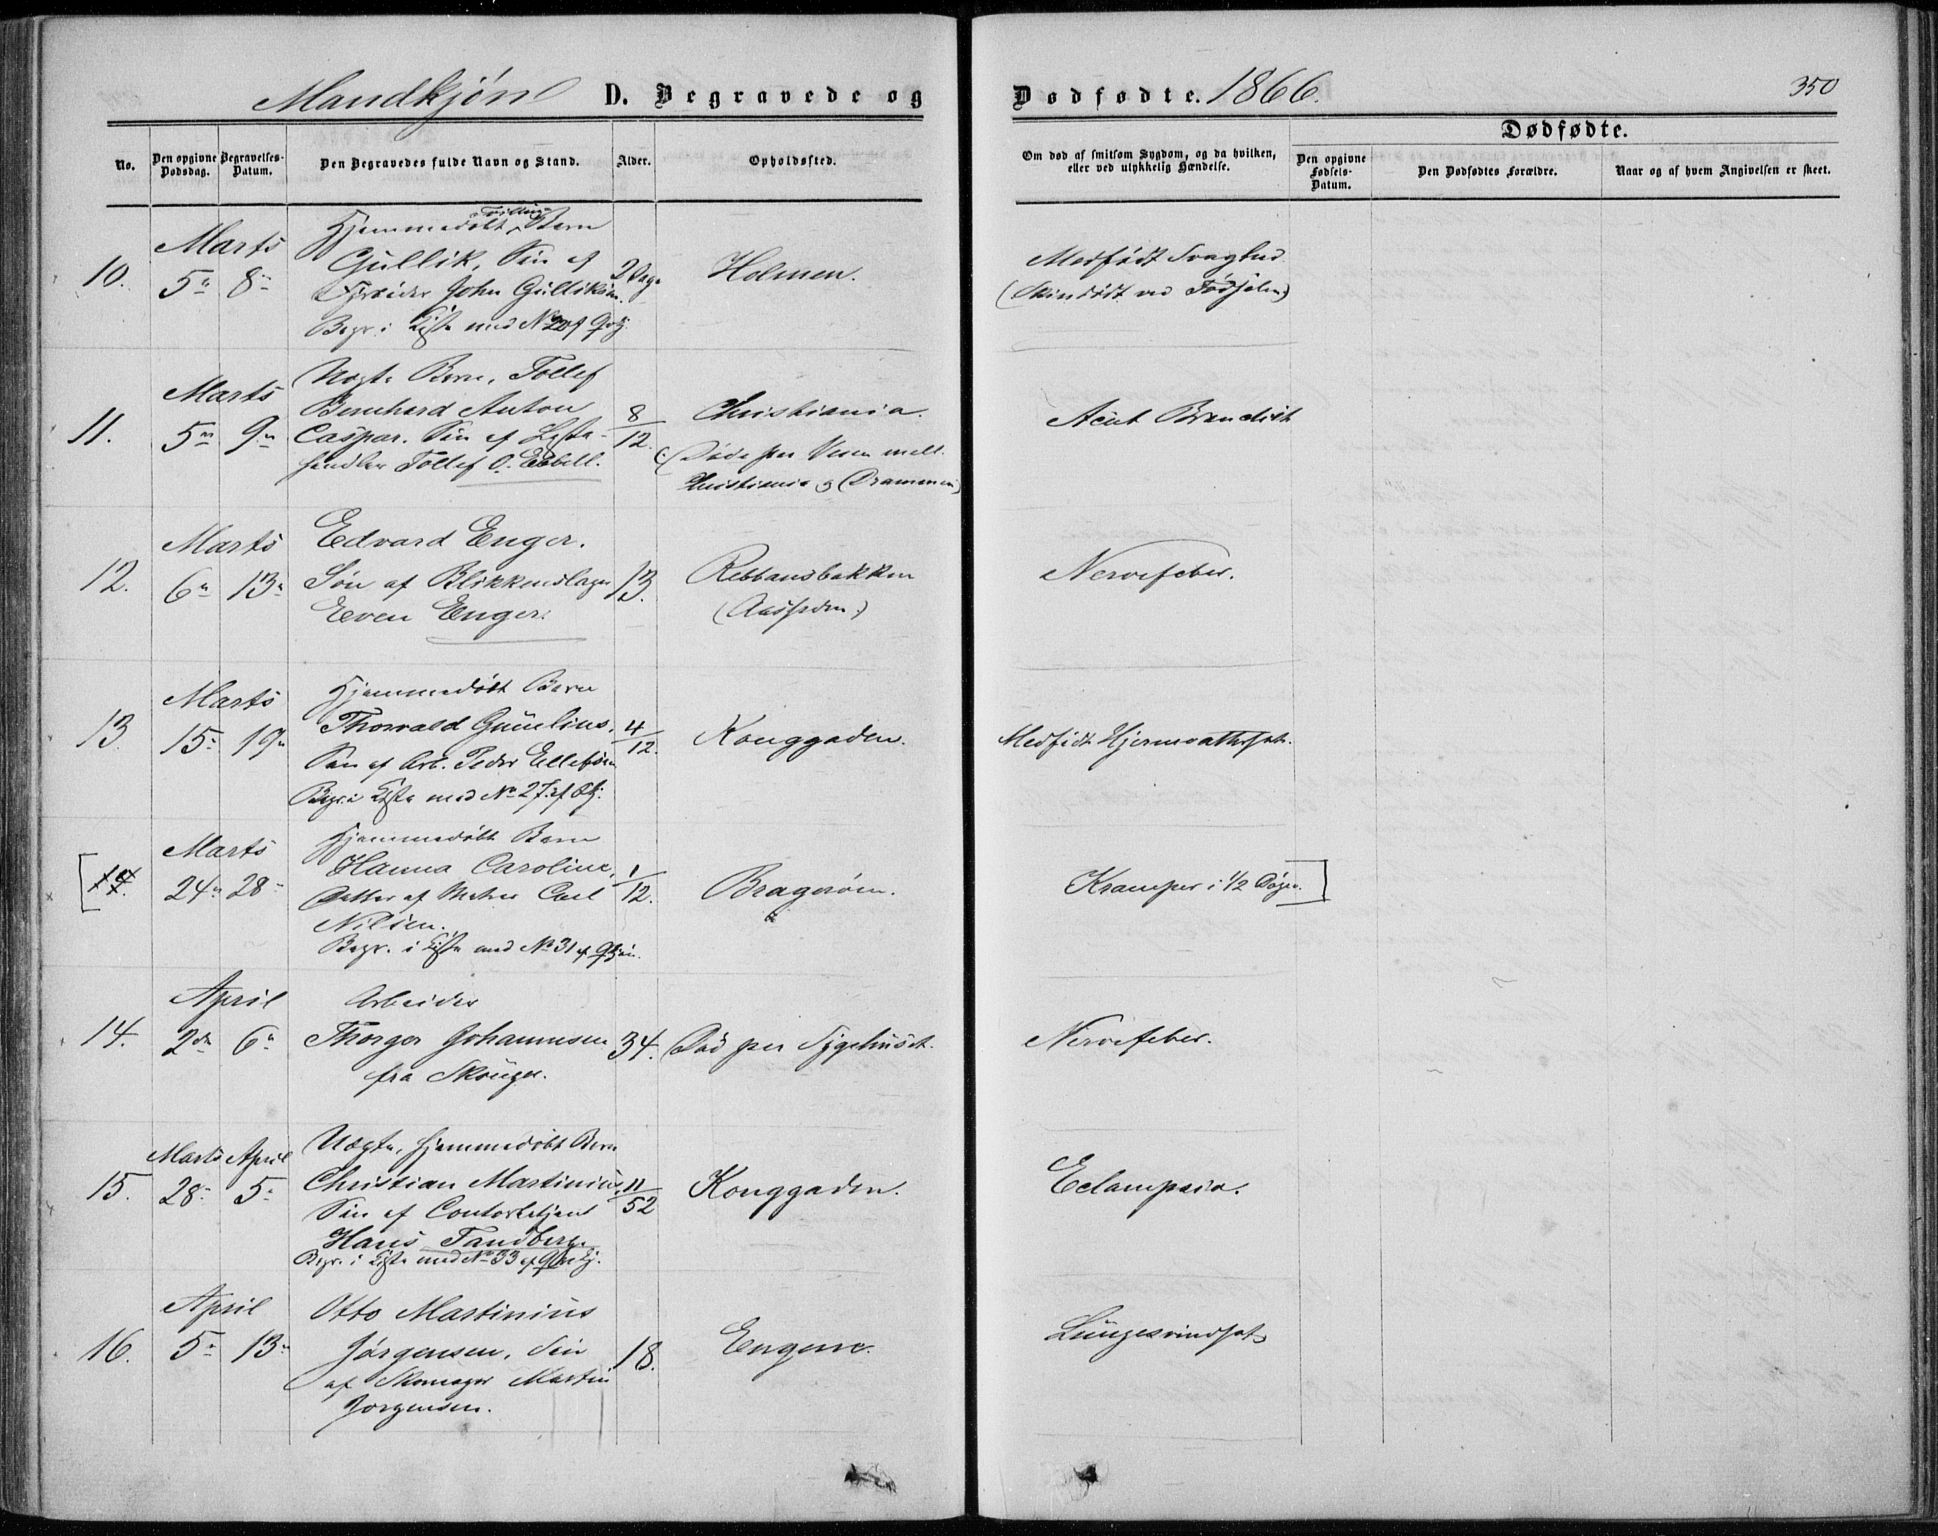 Mandkjøn D. Begravede og Dødfødte. 1866. 350
Dødfødte.
No.
Den opgivne Dødsdag.
Begravelses-Datum.
Den Begravedes fulde Navn og Stand.
Alder.
Opholdssted.
Om død af smitsom Sygdom, og da hvilken, eller ved ulykkelig Hændelse.
Den opgivne Fødsels-Datum.
Den Dødfødtes Forældre.
Naar og af hvem Angivelsen er skeet.
Tvilling
Marts Hjemmedøbt Barn
10. 5 8 Gullik, Søn af 2 Dage Holmen. Medfødt Svaghed
John Gulliksen. (Skindødt ved Fødselen)
Begr. i Kiste med No 20 af Qvkj.
Marts Uægte Barn, Tollef
11. 5 9 Bernhard Anton 8/12. Christiania. Acut Bronchit
Caspar. Søn af
handler Tollef O. Ebbell. (Døde paa Veien mell.
Christiania og Drammen)
Marts Edvard Enger.
12. 6 13 Søn af Blikkenslager 13. Rebbansbakken Nervefeber.
Even Enger.
Marts Hjemmedøbt Barn
13. 15 19 Thorvald 4/12. Konggaden. Medfødt
Søn af Arb. Peder Ellefsen
Begr. i Kiste med No 27 af Qkj.
Marts Hjemmedøbt Barn
[14. 24 28 Hanna Caroline, 1/12. Bragerøen. Kramper i 1/2 Døgn.]
Datter af Carl
Nilsen.
Begr. i Kiste med No 31 af Qkjøn.
April Arbeider
14. 2den 6 Thorger Johannesen 34. Død paa Sygehuset. Nervefeber.
fra Skouger.
Marts April Uægte, hjemmedøbt Barn
15. 28 5 Christian Martinius, 11/52 Konggaden. Eclampsia.
Søn af Contorbetjent
Hans Tandberg.
Begr. i Kiste med No 33 af Qvkj.
April Otto Martinius
16. 5 13 Jørgensen, Søn 18. Engene. Lungesvindsot
af Skomager Martin
Jørgensen.